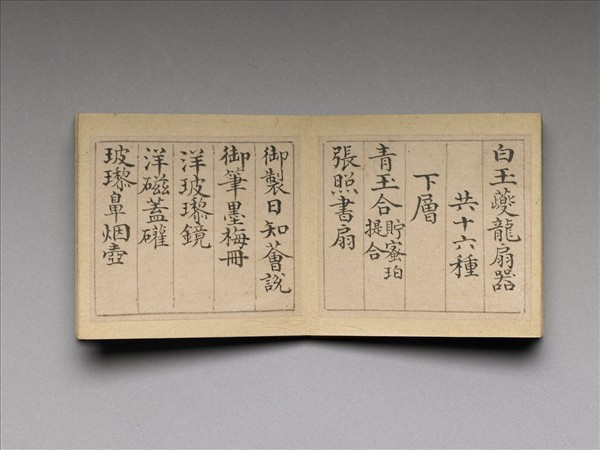 白玉蘷龍扇器
共十六種
下層
青玉合貯蜜珀提合
張照書扇
御製日知薈說
御筆墨梅冊
洋玻瓈鏡
洋磁蓋礶
玻瓈鼻烟壺